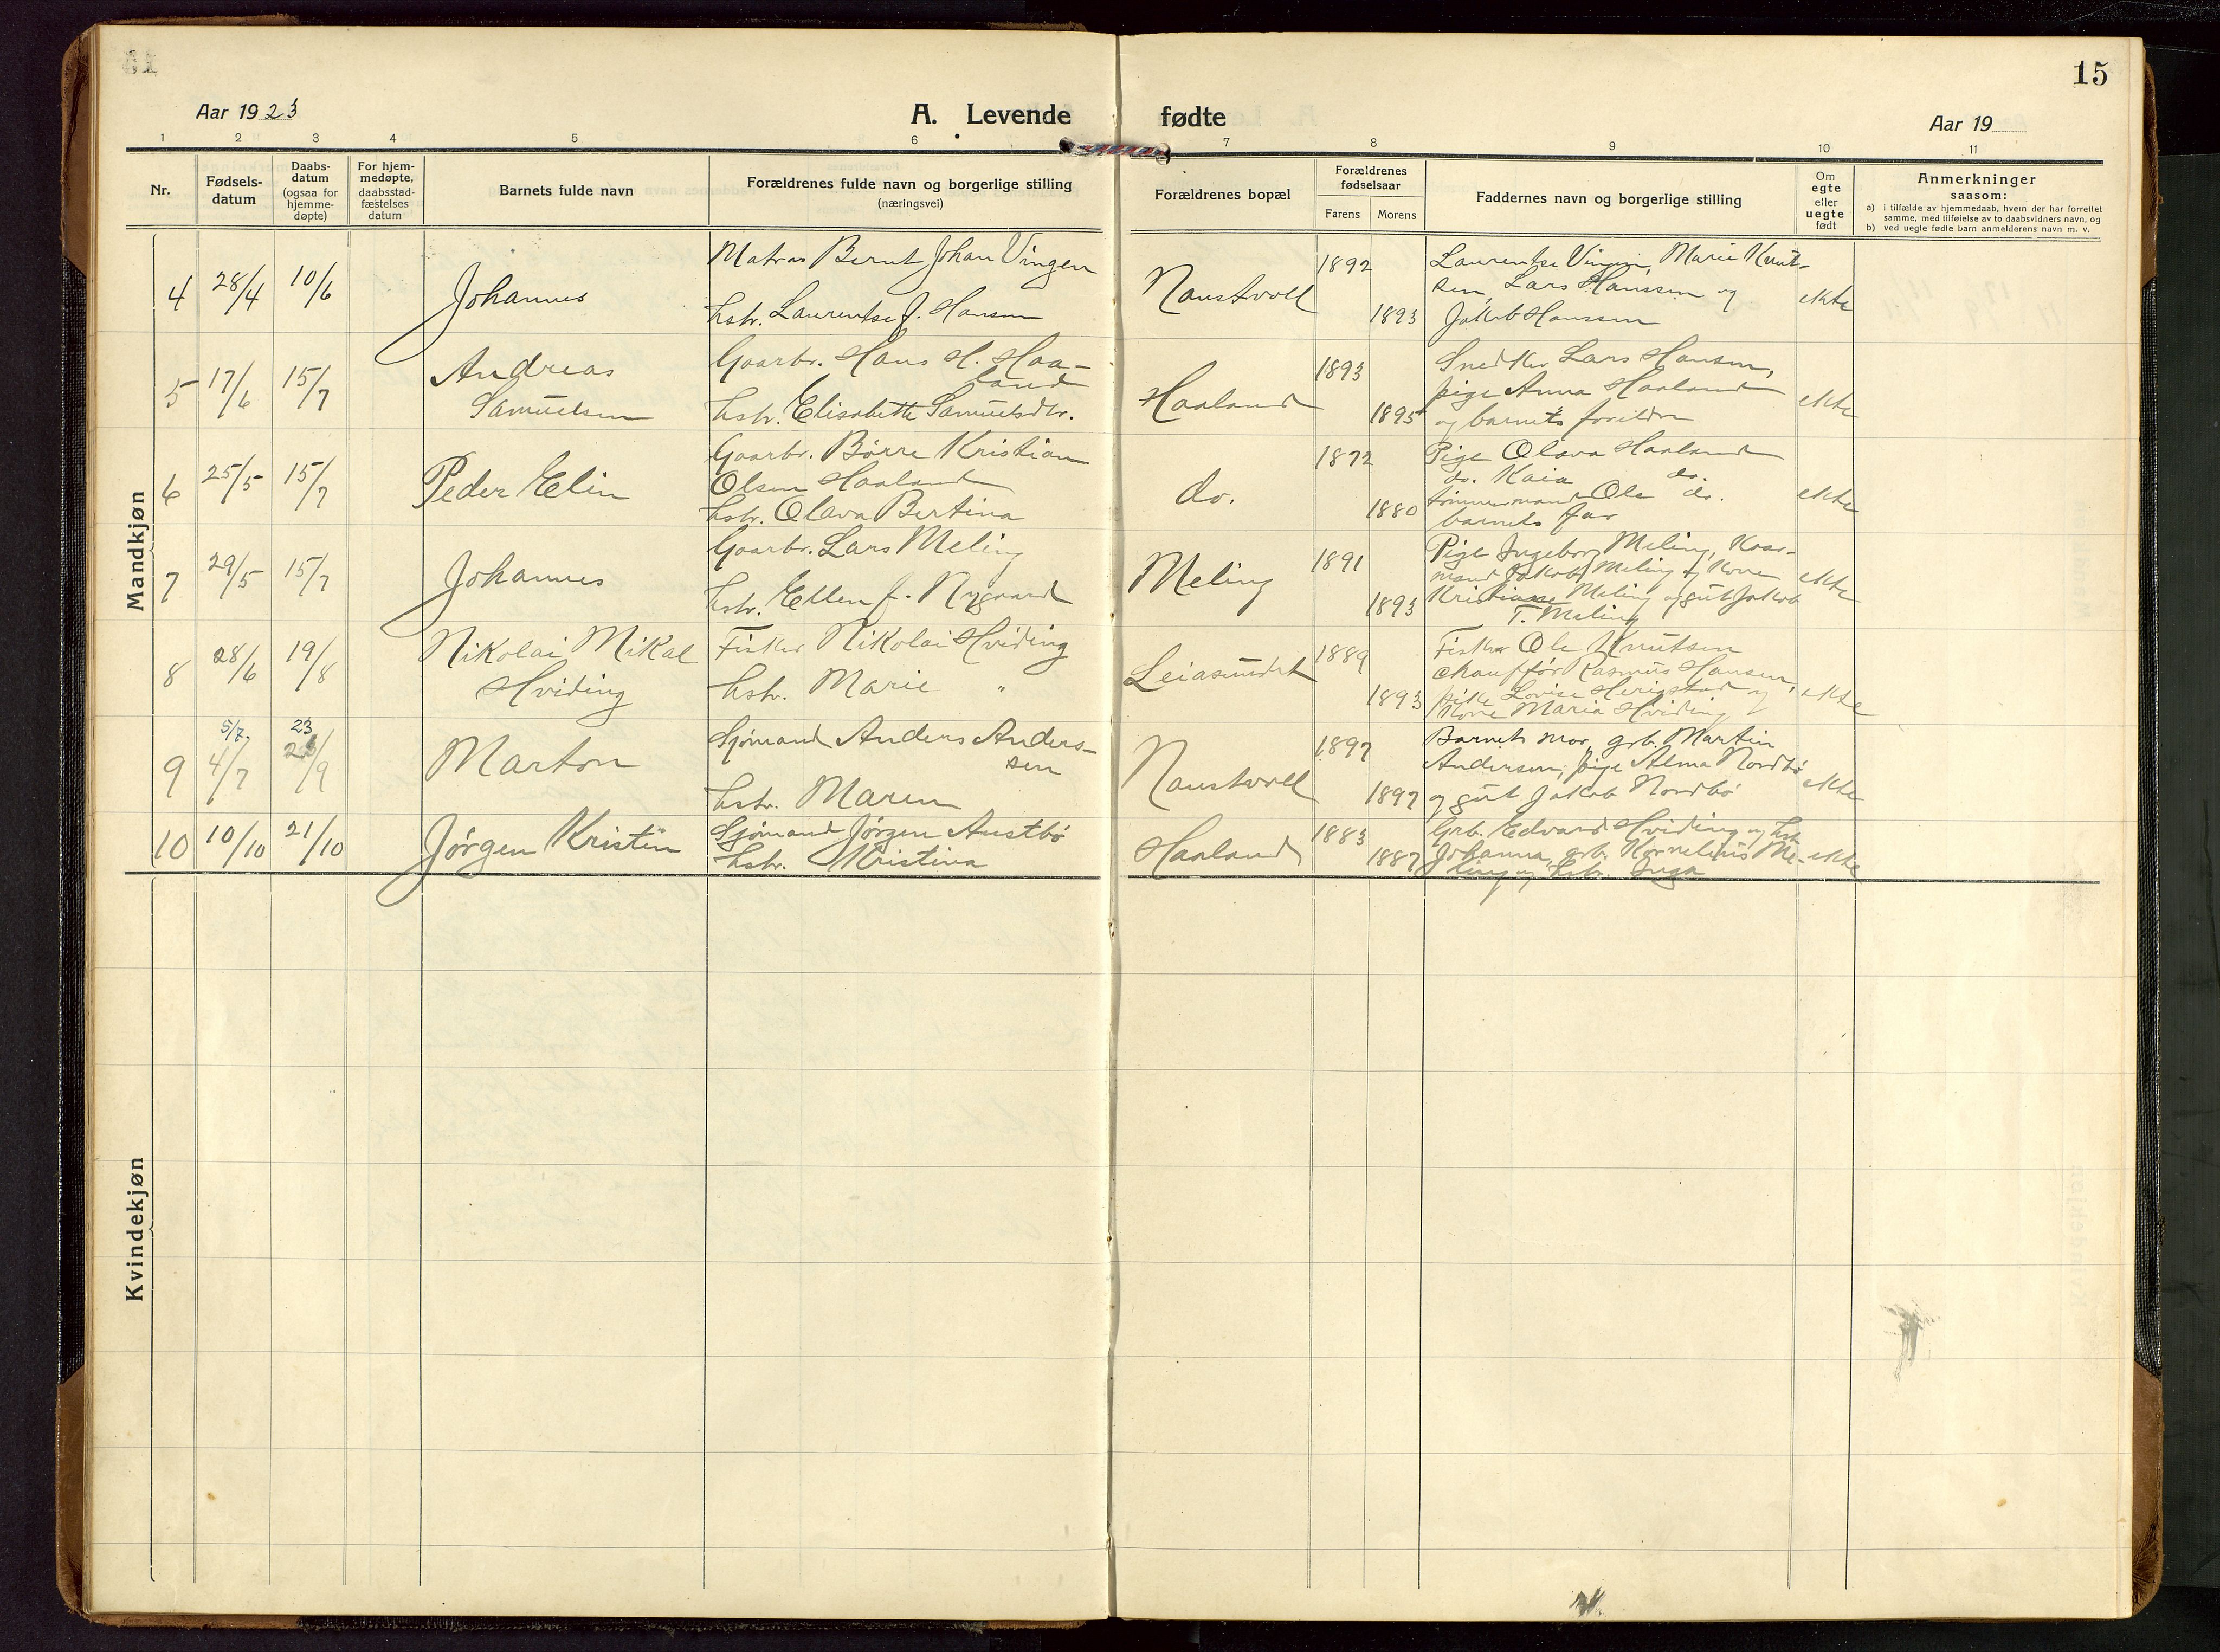 15
Aar 1923
A. Levende fødte
Aar 19
1 2 3 4 5 6 7 8 9 10 11
Nr.
Fødsels-
datum
Daabs-
datum
(ogsaa for
hjemme-
døpte)
For hjem-
medøpte,
daabsstad-
fæstelses
datum
Barnets fulde navn
Forældrenes fulde navn og borgerlige stilling
(næringsvei)
Forældrenes bopæl
Forældrenes
fødselsaar
Farens Morens
Faddernes navn og borgerlige stilling
Om
egte
eller
uegte
født
Anmerkninger
saasom:
a) i tilfælde av hjemmedaab, hvem der har forrettet
samme, med tilføielse av to daabsvidners navn, og
b) ved uegte fødte barn anmelderens navn m. v.
Mandkjøn
4 28/4 10/6 Johannes
Matros Bernt Johan Vingen
hstr. Laurentse f. Hansen
Naustvoll 1892 1893
Laurentse Vingen, Marie Knut-
sen, Lars Hanssen og
Jakob Hanssen
ekte
5 17/6 15/7 Andreas
Samuelsen
Gaarbr. Hans H. Haa-
land
hstr. Elisabette Samuelsdtr.
Haaland 1893 1895
Snedker Lars Hansen,
pige Anna Haaland
og barnets foreldre
ekte
6 25/5 15/7 Peder Elin
Gaarbr. Børre Kristian
Olsen Haaland
hstr. Olava Bertina
do. 1872 1880
Pige Olava Haaland
do. Kaia do.
tømmermand Ole do.
barnets far
ekte
7 29/5 15/7 Johannes
Gaarbr. Lars Meling
hstr. Ellen f. Nygaard
Meling 1891 1893
Pige Ingeborg Meling, Kaar-
mand Jakob Meling og Kone
Kristianse Meling og gut Jakob
T. Meling
ekte
8 28/6 19/8 Nikolai Mikal
Hviding
Fisker Nikolai Hviding
hstr. Marie "
Leiasundet 1889 1893
Fisker Ole Knutsen
chauffør Rasmus Hansen,
pike Lovise Herigstad og
Kone Maria Hviding
ekte
5/7. 23
9 4/7 /9 Marton
Sjømand Anders Anders-
sen
hstr. Maren
Naustvoll 1897 1897
Barnets mor, grb. Martin
Andersen, pige Alma Nordbø
og gut Jakob Nordbø
ekte
10 10/10 21/10 Jørgen Kristin
Sjømand Jørgen Austbø
hstr. Kristina
Haaland 1883 1887
Grb. Edvard Hviding og hstr
Johanna, grb. Kornelius Me-
ling og hstr. Inga
ekte
Kvindekjøn